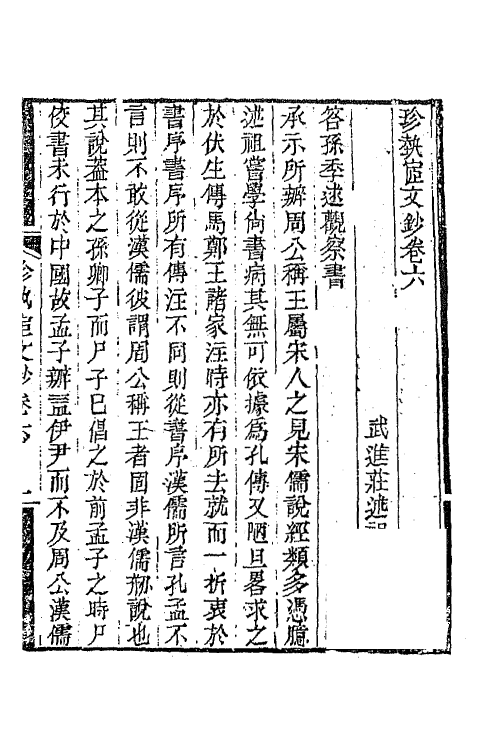 珍埶宧文鈔卷六
武進莊述祖
答孫季逑觀察書
承示所辦周公稱王屬宋人之見宋儒說經類多憑臆
述祖嘗學尚書病其無可依據為孔傳又陋且畧求之
於伏生傳馬鄭王諸家注時亦有所去就而一折衷於
書序書序所有傳注不同則從書序漢儒所言孔孟不
言則不敢從漢儒彼謂周公稱王者固非漢儒刱說也
其說葢本之孫卿子而尸子已倡之於前孟子之時尸
佼書未行於中國故孟子辦益伊尹而不及周公漢儒
珍埶宧文鈔卷六